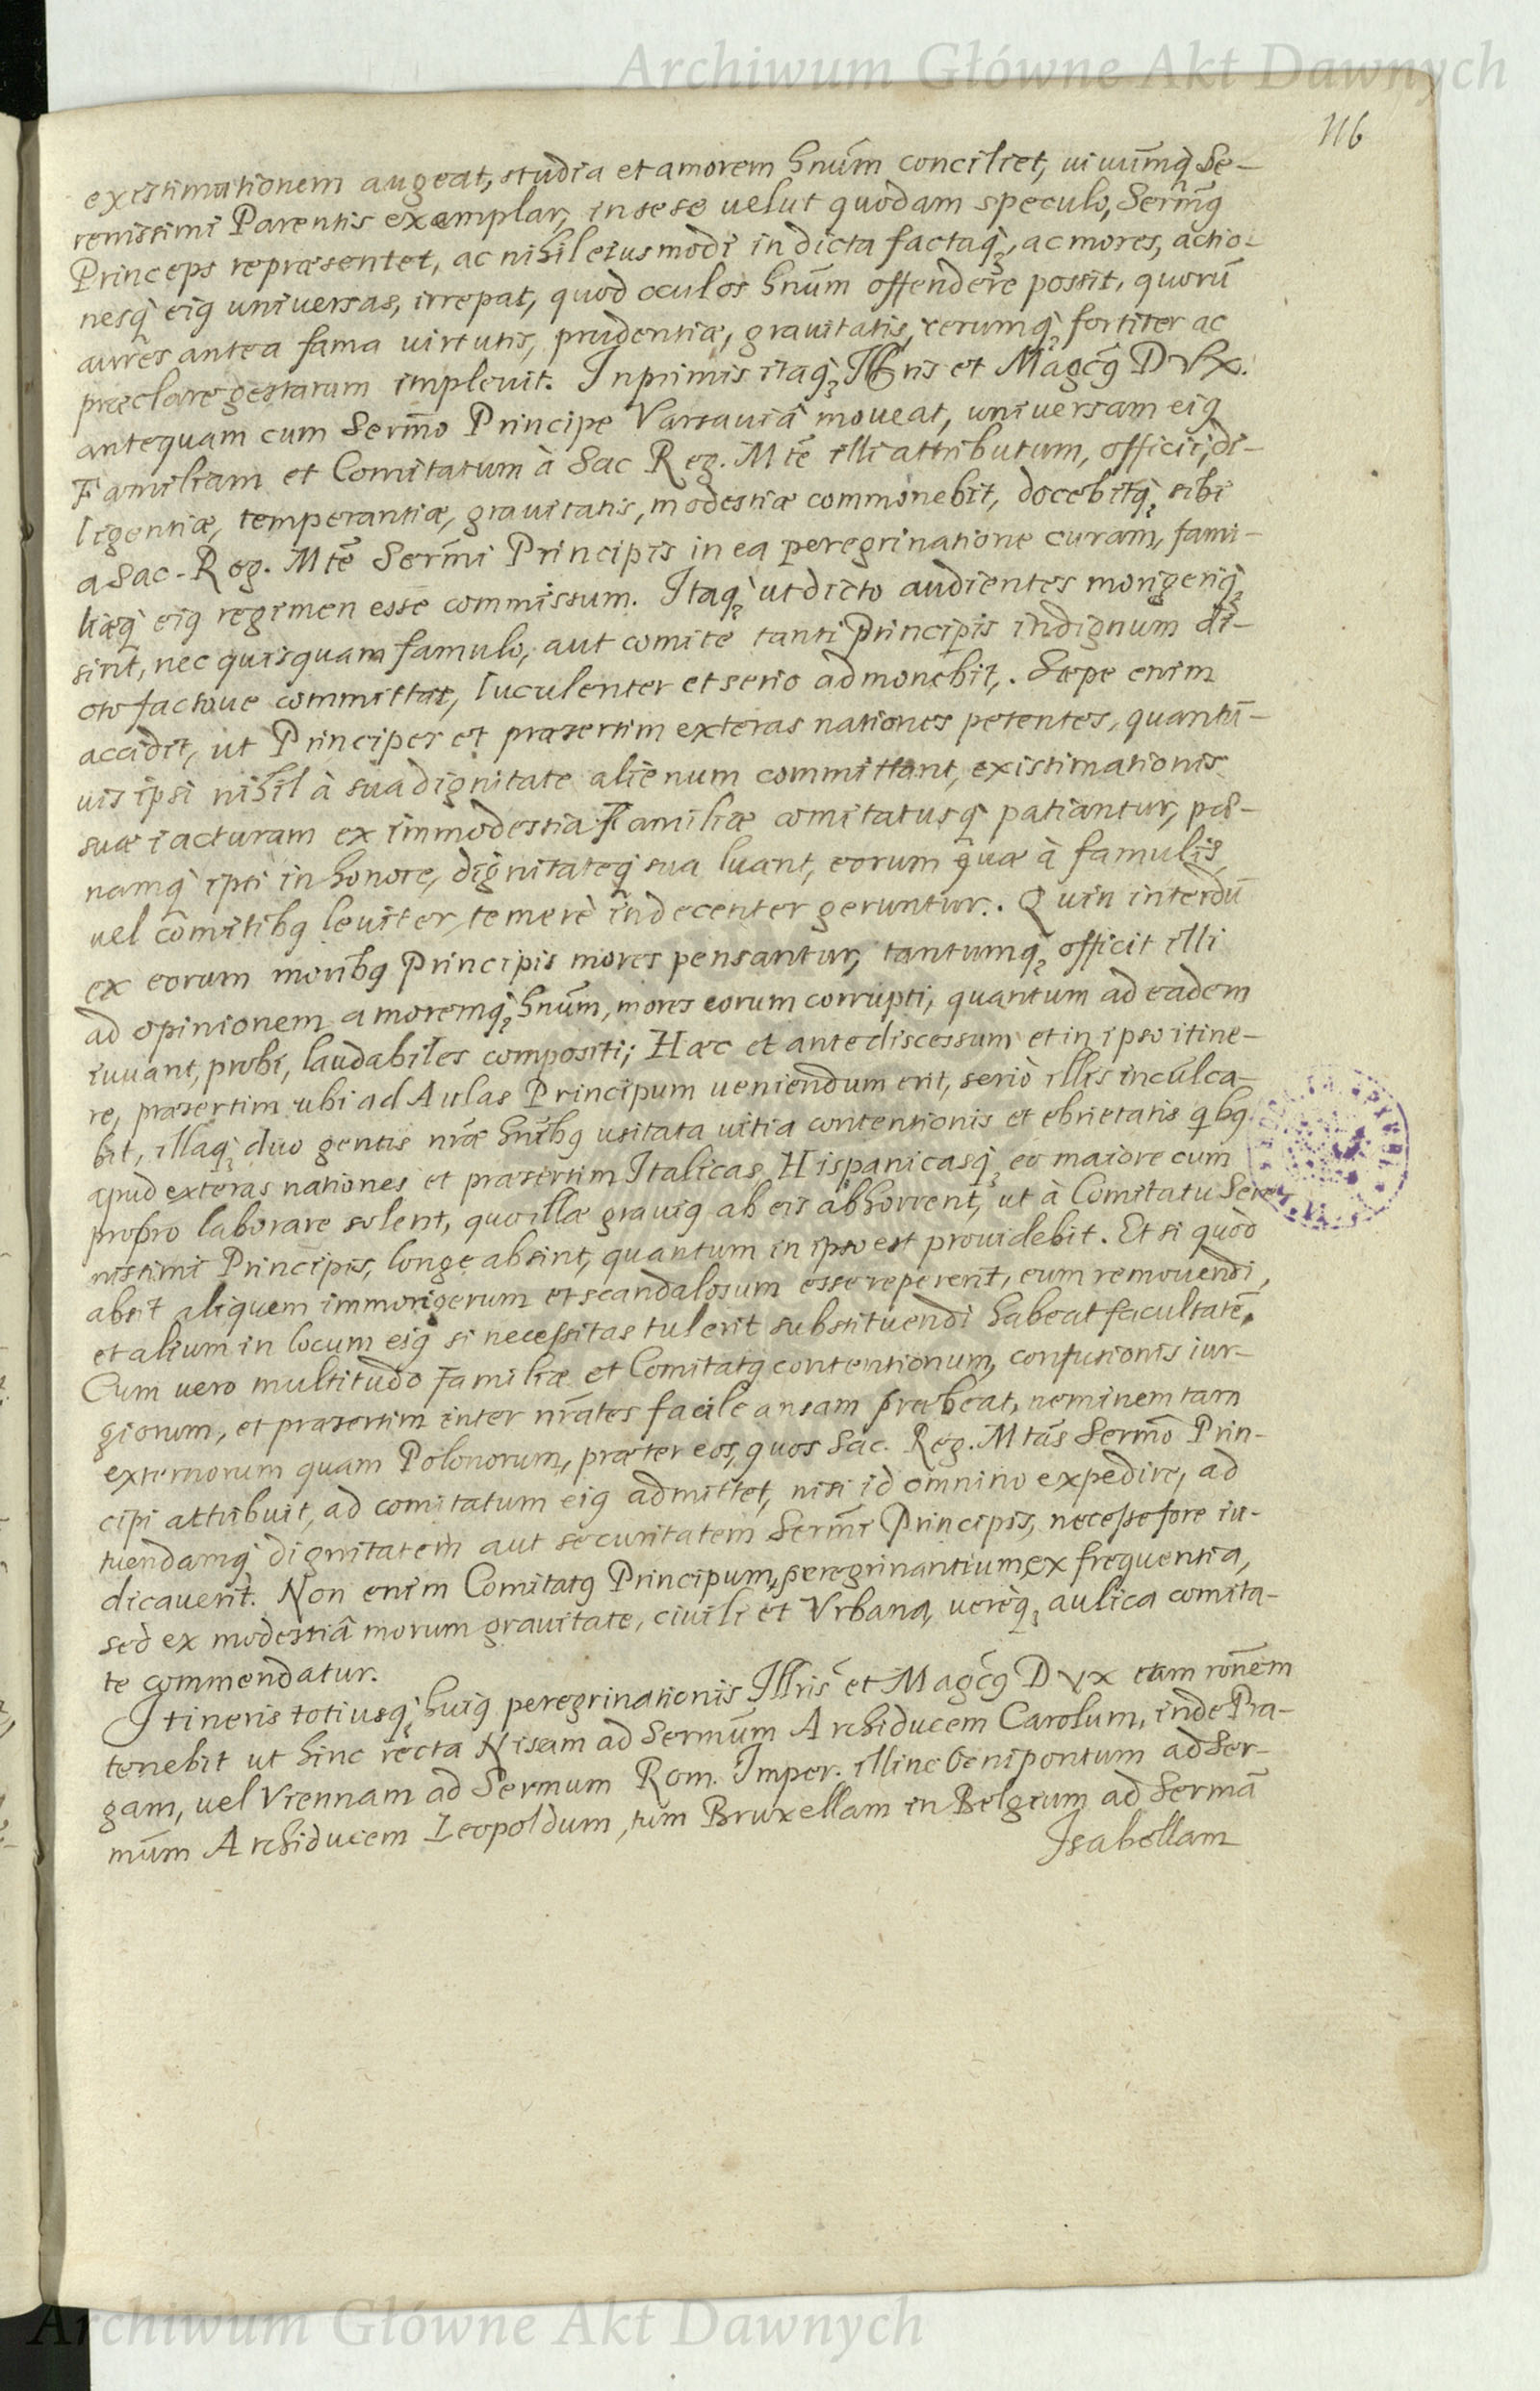 Archiwum Główne Akt Dawnych
116
existimationem augeat, studia et amorem hnũm conciliet, uiuumq̃ Se-
renissimi Parentis exemplar, in sese uelut quodam speculo, Sermꝰ
Princeps repræsentet, ac nihil eiusmodi in dicta factaq̃, ac mores, actio-
nesq̃ eiꝰ universas, irrepat, quod oculos hnũm offendere possit, quorũ
aures antea fama uirtutis, prudentiæ, grauitatis, rerumq̃ fortiter ac
præclare gestarum impleuit. Inprimis itaq̃ Illris et Magcꝰ Dux.
antequam cum Sermo Principe Varsauiâ moueat, universam eiꝰ
Familiam et Comitatum à Sac Reg. Mte illi attributum, officii, di-
ligentiæ, temperantiæ, grauitatis, modestiæ commonebit, docebitq̃ sibi
a Sac. Reg. Mte Sermi Principis in ea peregrinatione curam, fami-
liæq̃ eiꝰ regimen esse commissum. Itaq̃ ut dicto audientes morigeriq̃
sint, nec quisquam famulo, aut comite tanti Principis indignum di-
cto factoue committat, luculenter et serio admonebit. Sæpe enim
accidit, ut Principes et præsertim exteras nationes petentes, quantũ-
uis ipsi nihil à sua dignitate alienum committant, existimationis
suæ iacturam ex immodestia Familiæ comitatusq̃ patiantur, pæ-
namq̃ ipsi in honore, dignitateq̃ sua luant, eorum quæ à famulis
uel comitibꝰ leuiter, temerè indecenter geruntur. Quin interdũ
ex eorum moribꝰ Principis mores pensantur, tantumq̃ officit illi
ad opinionem amoremq̃ hnũm, mores eorum corrupti, quantum ad eadem
iuuant, probi, laudabiles compositi; Hæc et ante discessum et in ipso itine-
re, præsertim ubi ad Aulas Principum ueniendum erit, seriò illis inculca-
bit, illaq̃ duo gentis nræ hnibꝰ usitata uitia contentionis et ebrietatis qbꝰ
apud exteras nationes et præsertim Italicas Hispanicasq̃ eo maiore cum
probro laborare solent, quo illæ grauiꝰ ab eis abhorrent, ut à Comitatu Sere-
nissimi Principis, longe absint, quantum in ipso est prouidebit. Et si quòd
absit aliquem immorigerum et scandalosum esse repererit, eum remouendi,
et alium in locum eiꝰ si necessitas tulerit substituendi habeat facultatẽ.
Cum uero multitudo Familiæ et Comitatꝰ contentionum, confusionis iur-
giorum, et præsertim inter nrates facile ansam præbeat, neminem tam
externorum quam Polonorum, præter eos, quos Sac. Reg. Mtas Sermo Prin-
cipi attribuit, ad comitatum eiꝰ admittet, nisi id omnino expedire, ad
tuendamq̃ dignitatem aut securitatem Sermi Principis, necesse fore iu-
dicauerit. Non enim Comitatꝰ Principum, peregrinantium, ex frequentia,
sed ex modestiâ morum grauitate, ciuili et Vrbana, uereq̃ aulica comita-
te commendatur.
Itineris totiusq̃ huiꝰ peregrinationis Illris et Magcꝰ Dux eam ronem
tenebit ut hinc recta Nisam ad Sermum Archiducem Carolum, inde Pra-
gam, uel Viennam ad Sermum Rom. Imper. illinc Oenipontum ad Ser-
mum Archiducem Leopoldum, tum Bruxellam in Belgium ad Sermã
Isabellam
Archiwum Główne Akt Dawnych